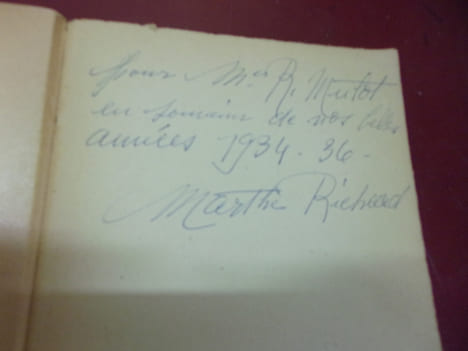 Pour Mr R. Mutot
en souvenir de nos belles
années 1934-36-
Marthe Richard